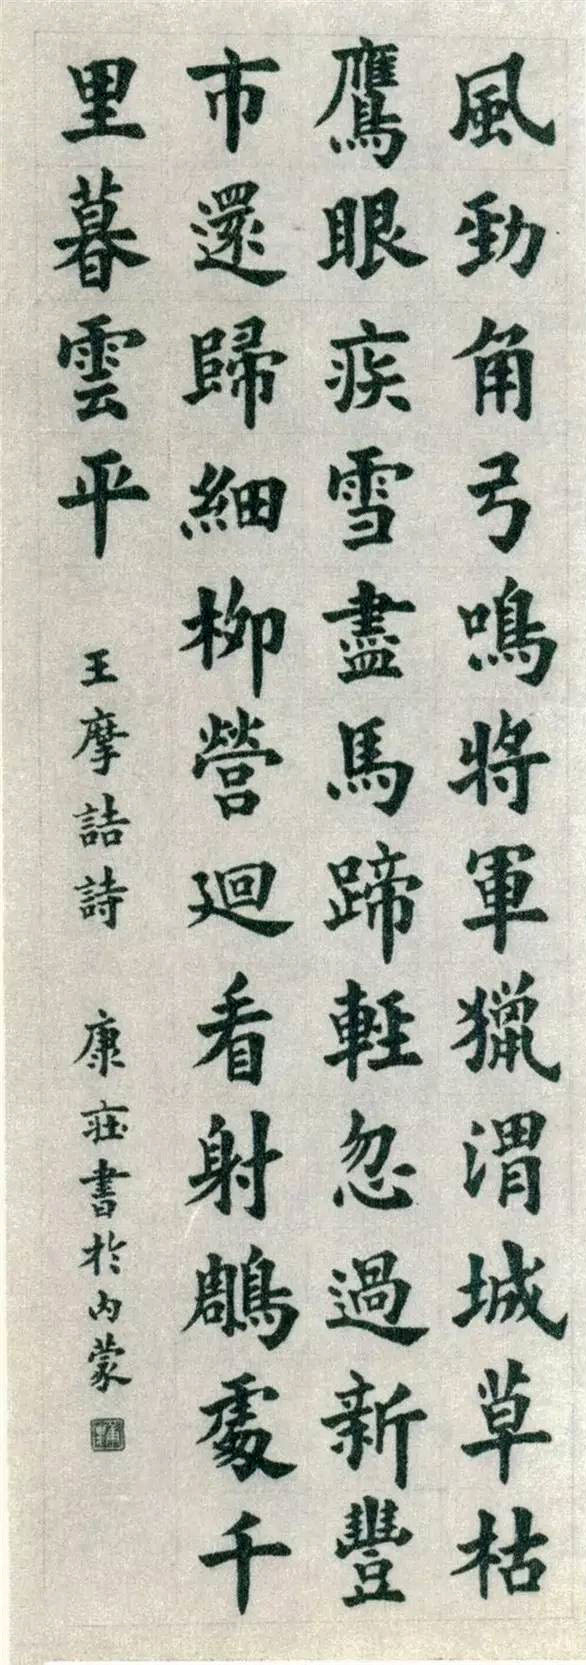 風勁角弓鳴將軍獵渭城草枯
鷹眼疾雪盡馬蹄輕忽過新豐
市還歸細柳營迴看射鵰處千
里暮雲平
王摩詰詩 康莊書於內蒙